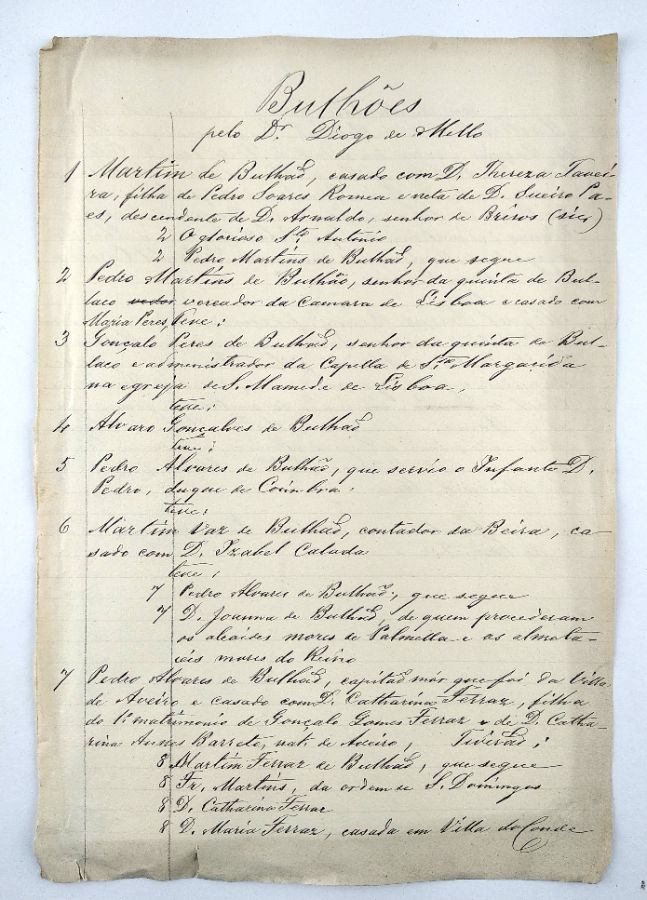 Bulhões
pelo Dr Diogo de Mello
1 Martim de Bulhaõ, casado com D. Thereza Tavei-
ra, filha de Pedro Soares Romeu e neta de D. Sueiro Pa-
es, descendente de D. Arnaldo, senhor de Briros (sic)
2 O glorioso Sto Antonio
2 Pedro Martins de Bulhaõ, que segue
2 Pedro Martins de Bulhão, senhor da quinta de Bul-
laco vereador da Camara de Lisboa e casado com
Maria Peres, teve:
3 Gonçalo Peres de Bulhaõ, senhor da quinta do Bul-
laco e administrador da Capella de Sta Margarida
na egreja de S. Mamede de Lisboa,
teve:
4 Alvaro Gonçalves de Bulhaõ
teve:
5 Pedro Alvares de Bulhaõ, que servio o Infante D.
Pedro, duque de Coimbra.
teve:
6 Martim Vaz de Bulhaõ, contador da Beira, ca-
sado com D. Izabel Calada
teve:
7 Pedro Alvares de Bulhaõ, que segue
7 D. Joanna de Bulhaõ, de quem procederam
os alcaides mores de Palmella e os almota-
céis mores do Reino
7 Pedro Alvares de Bulhaõ, capitaõ mór que foi da Villa
de Aveiro e casado com D. Catharina Ferraz, filha
do 1o matrimonio de Gonçalo Gomes Ferraz e de D. Catha-
rina Annes Barreto, nat. de Aveiro, Tiveraõ:
8 Martim Ferraz de Bulhaõ, que segue
8 Fr. Martins, da ordem de S. Domingos
8 D. Catharina Ferraz
8 D. Maria Ferraz, casada em Villa do Conde